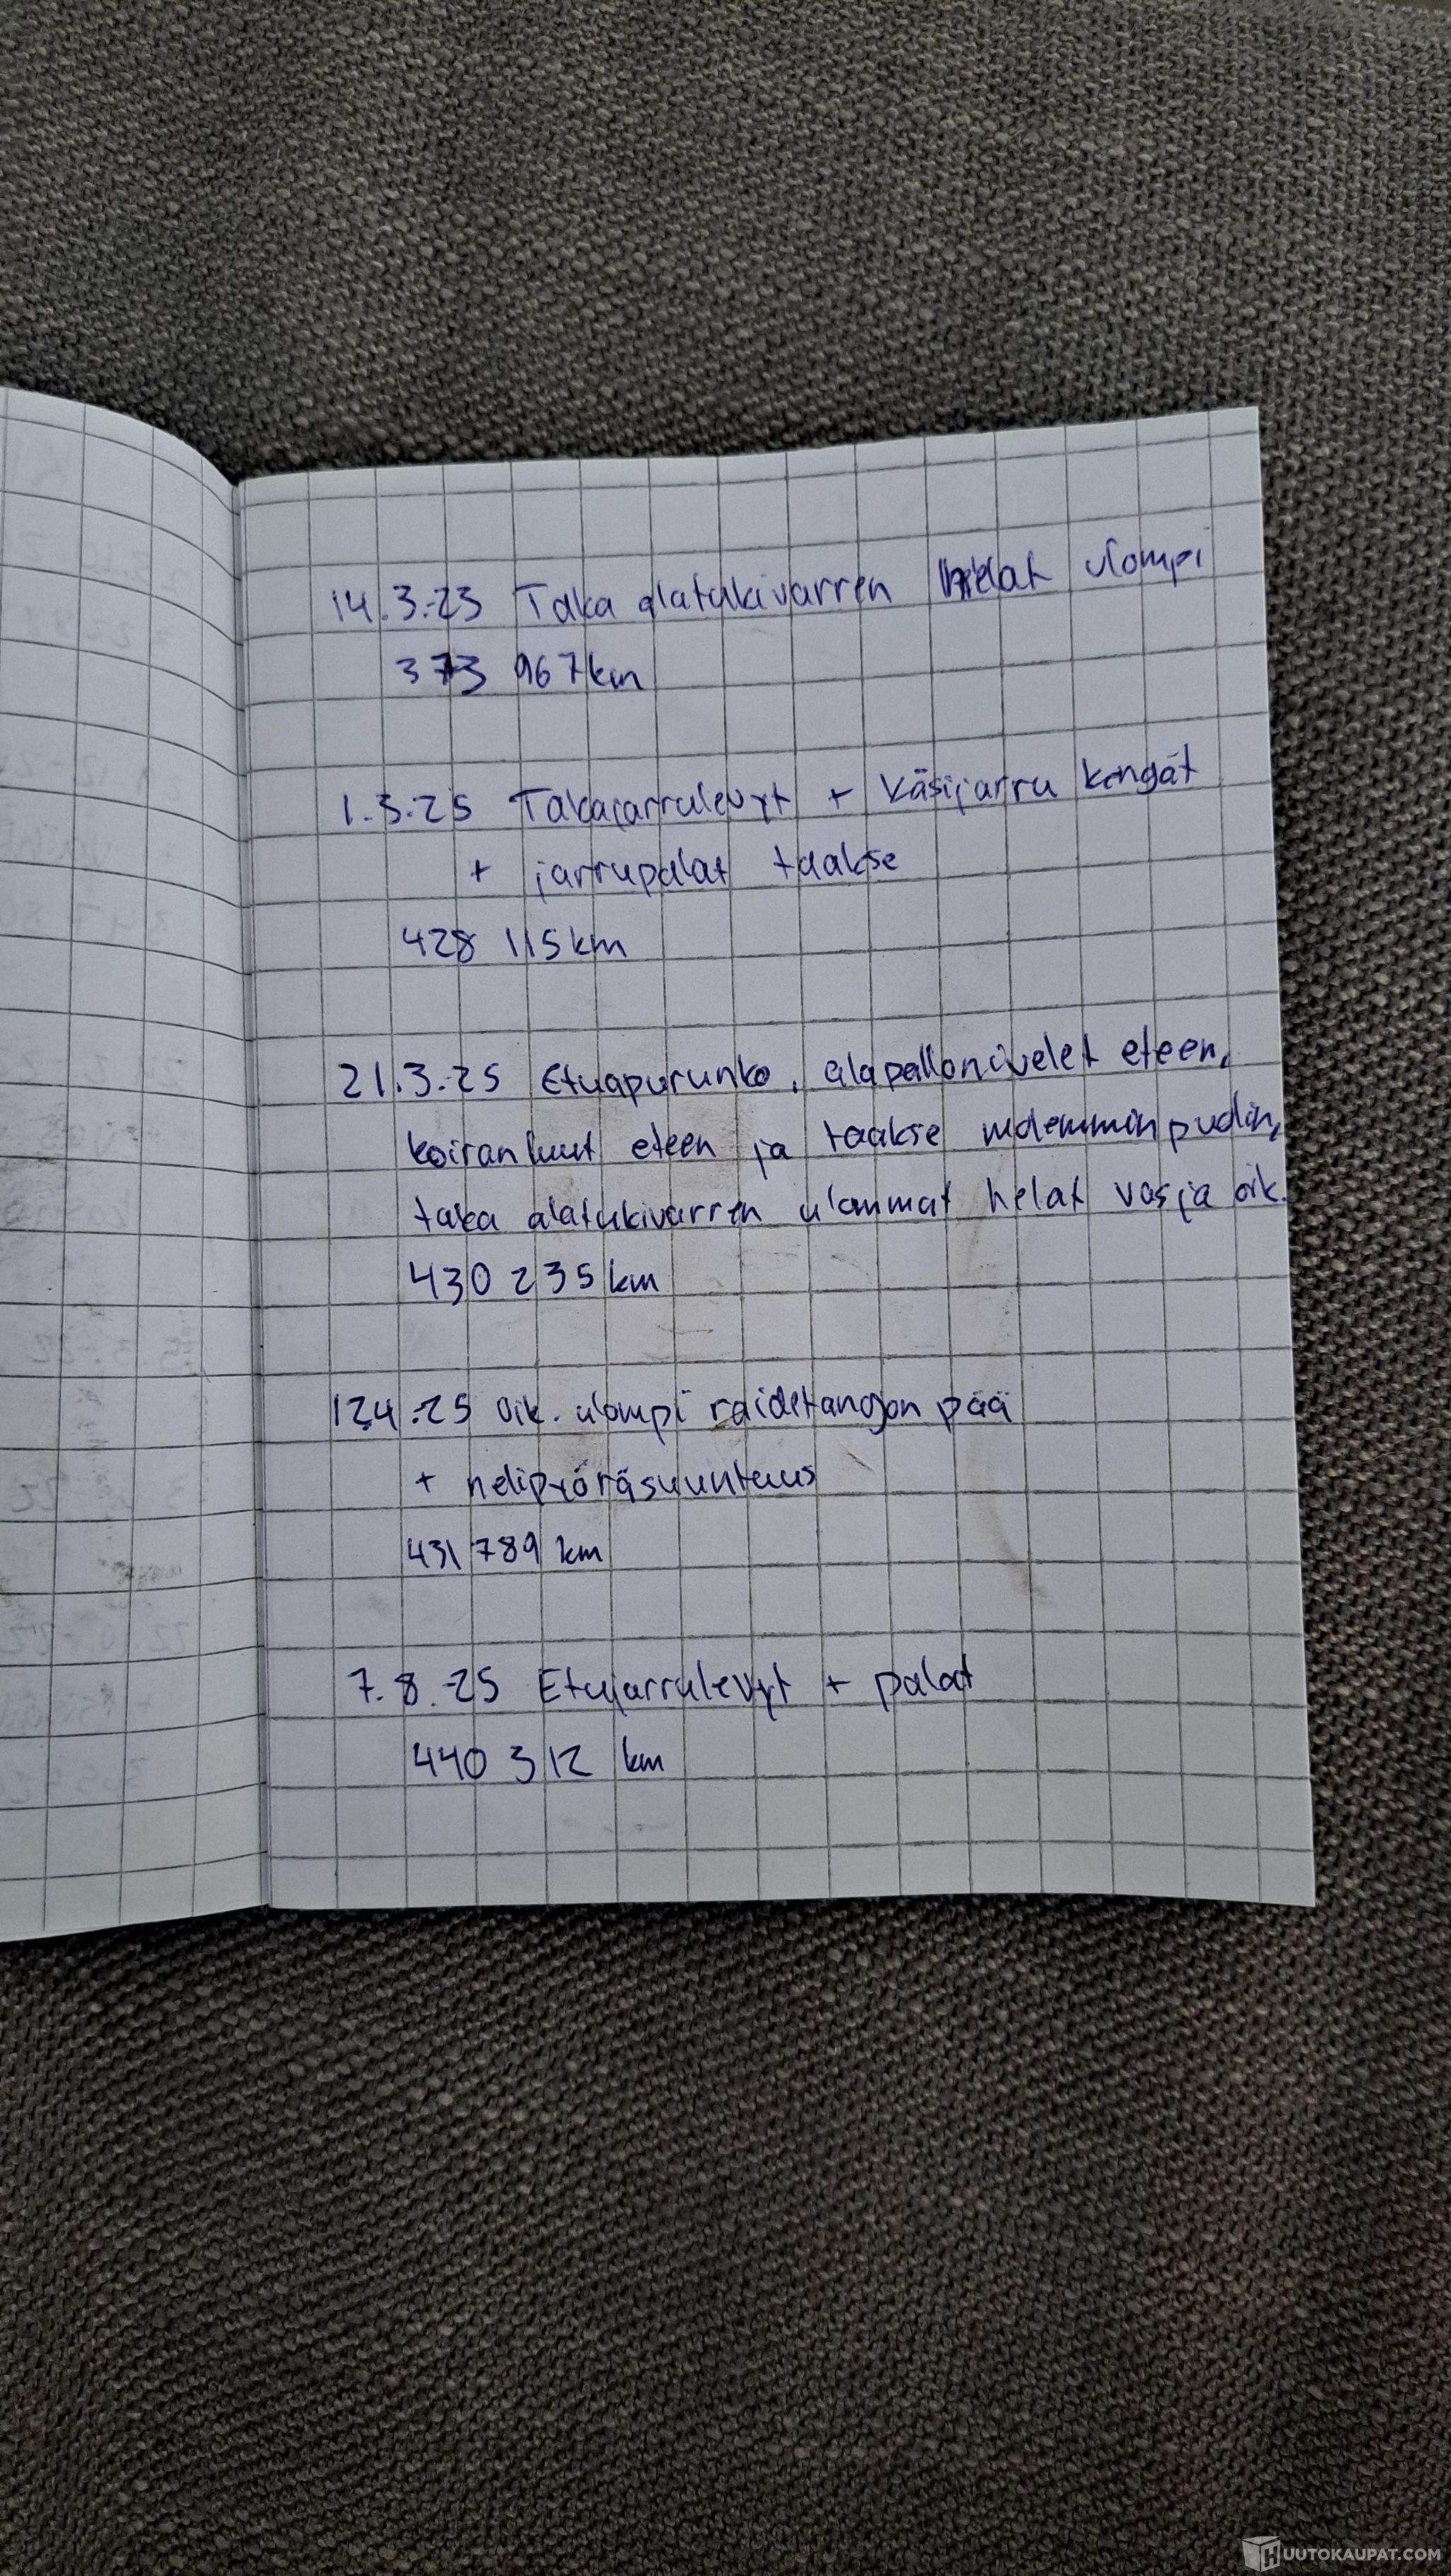 14.3.-23 Taka alatukivarren helat ulompi
373 967km
1.3.-25 Takajarrulevyt + käsijarru kengät
+ jarrupalat taakse
428 115km
21.3.-25 Etuapurunko, alapallonivelet eteen,
koiranluut eteen ja taakse molemmin pudin,
taka alatukivarren ulommat helat vas ja oik.
430 235km
12.4.-25 Oik. ulompi raidetangon pää
+ nelipyöräsuuntaus
431 789 km
7.8.-25 Etujarrulevyt + palat
440 312 km
HUUTOKAUPAT.COM